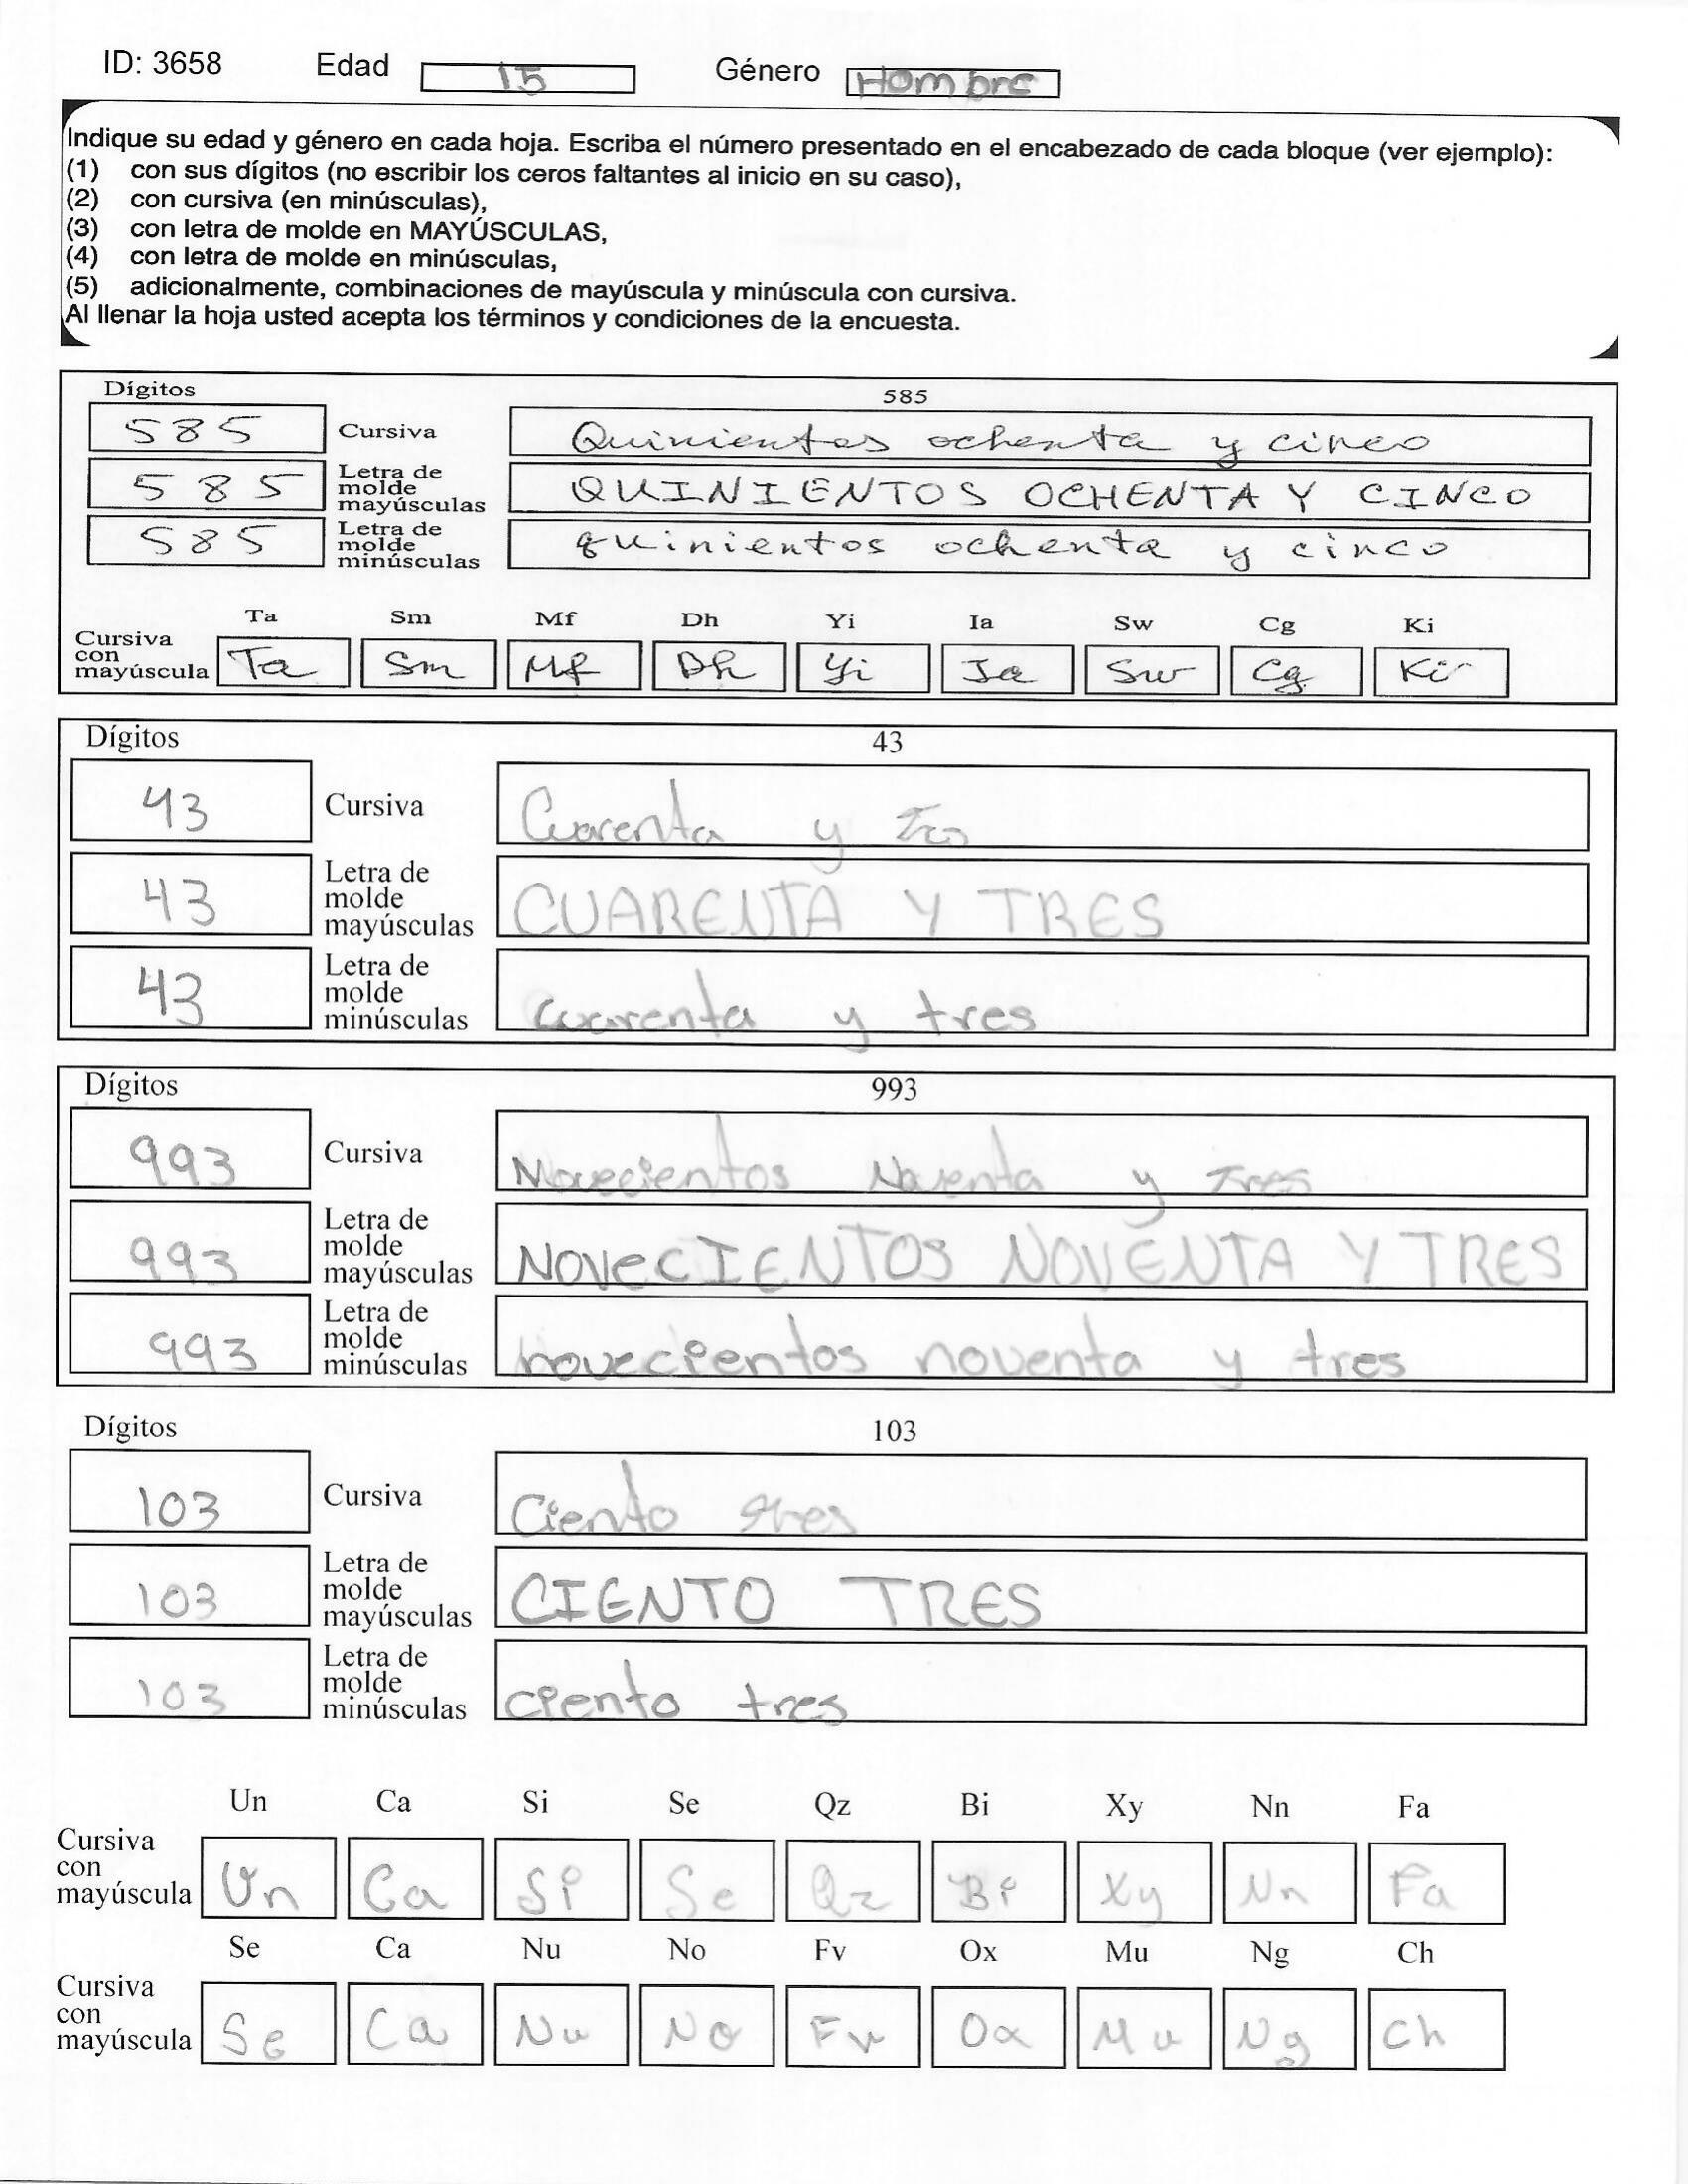 ID: 3658 Edad 15 Género Hombre
Indique su edad y género en cada hoja. Escriba el número presentado en el encabezado de cada bloque (ver ejemplo):
(1) con sus dígitos (no escribir los ceros faltantes al inicio en su caso),
(2) con cursiva (en minúsculas),
(3) con letra de molde en MAYÚSCULAS,
(4) con letra de molde en minúsculas,
(5) adicionalmente, combinaciones de mayúscula y minúscula con cursiva.
Al llenar la hoja usted acepta los términos y condiciones de la encuesta.
Dígitos 585
585 Cursiva Quinientos ochenta y cinco
585 Letra de molde mayúsculas QUINIENTOS OCHENTA Y CINCO
585 Letra de molde minúsculas quinientos ochenta y cinco
Ta Sm Mf Dh Yi Ia Sw Cg Ki
Cursiva con mayúscula Ta Sm Mf Dh Yi Ia Sw Cg Ki
Dígitos 43
43 Cursiva Cuarenta y Tres
43 Letra de molde mayúsculas CUARENTA Y TRES
43 Letra de molde minúsculas cuarenta y tres
Dígitos 993
993 Cursiva Novecientos Noventa y Tres
993 Letra de molde mayúsculas NOVeCIENTOS NOVENTA Y TRES
993 Letra de molde minúsculas novecientos noventa y tres
Dígitos 103
103 Cursiva Ciento tres
103 Letra de molde mayúsculas CIENTO TRES
103 Letra de molde minúsculas ciento tres
Un Ca Si Se Qz Bi Xy Nn Fa
Cursiva con mayúscula Un Ca Si Se Qz Bi Xy Nn Fa
Se Ca Nu No Fv Ox Mu Ng Ch
Cursiva con mayúscula Se Ca Nu No Fv Ox Mu Ng Ch